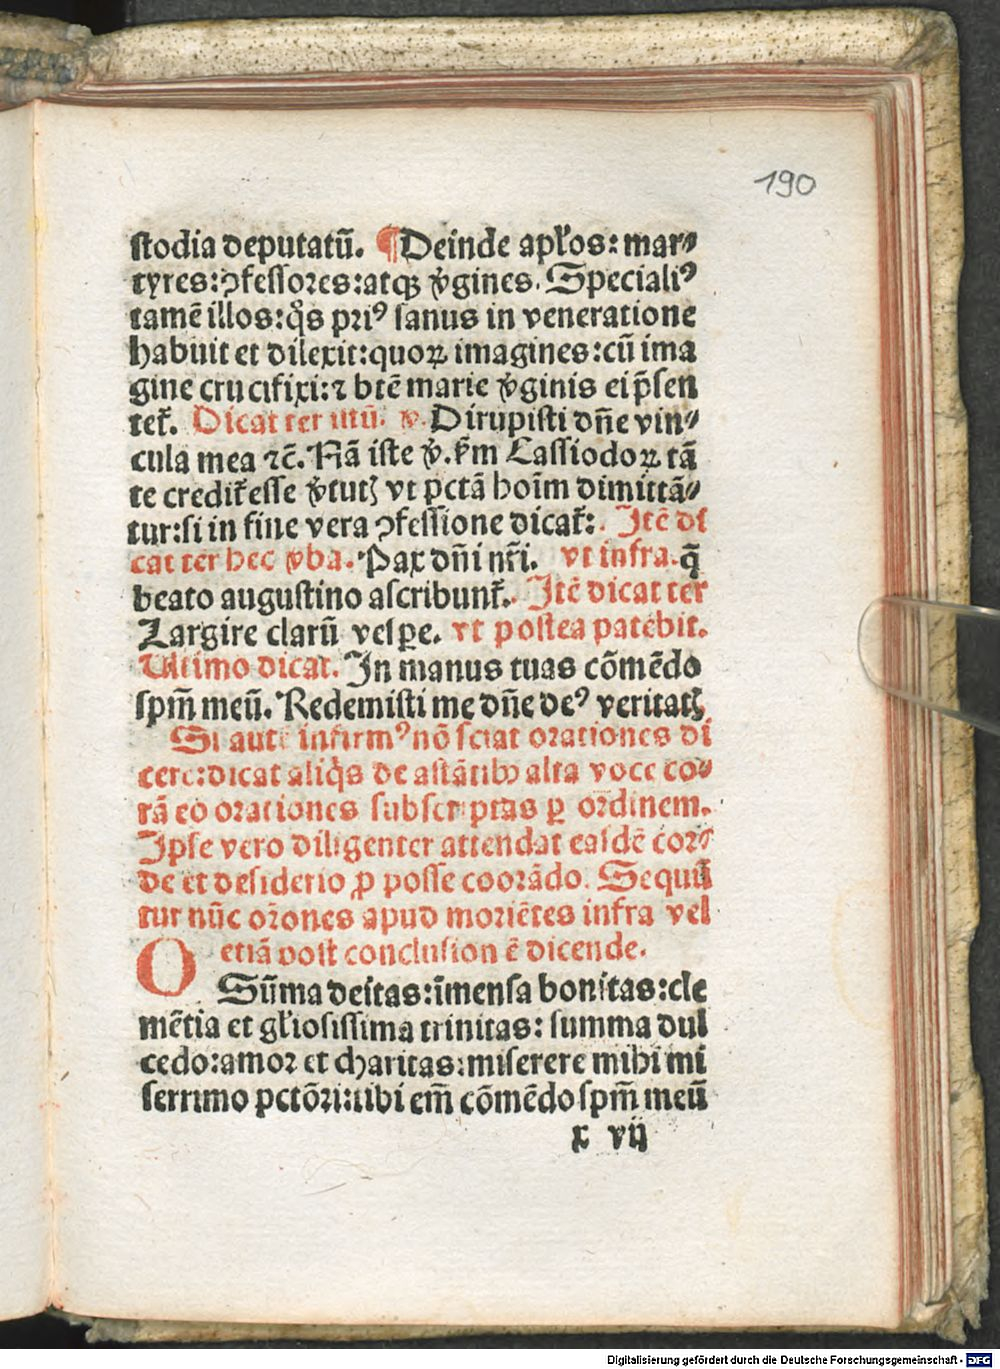 190
stodia deputatū. ¶Deinde apl'os: mar⸗
tyres: ꝯfessores: atqꝫ v̓gines. Speciali⁹
tamē illos: qͦs pri⁹ sanus in veneratione
habuit et dilexit: quoꝝ imagines: cū ima
gine crucifixi: ⁊ btē marie v̓ginis ei p̄sen
tet᷑. Dicat ter istū. ℣. Dirupisti dn̄e vin⸗
cula mea ⁊c̄. Nā iste v̓. ẜm Cassiodoꝝ tā
te credit᷑ esse v̓tutꝭ vt pctā hoīm dimittā⸗
tur: si in fine vera ꝯfessione dicat᷑: . Itē di
cat ter hec v̓ba. Pax dn̄i nr̄i. vt infra. q̄
beato augustino ascribunt᷑. Itē dicat ter
Largire clarū vesꝑe. vt postea patebit.
Ultimo dicat. In manus tuas cōmēdo
spm̄ meū. Redemisti me dn̄e de⁹ veritatꝭ
Si autē infirm⁹ nō sciat orationes di
cere: dicat aliq̇s de astātibꝰ alta voce co⸗
rā eo orationes subscriptas ꝑ ordinem.
Ipse vero diligenter attendat easdē cor⸗
de et desiderio ꝓ posse coorādo. Sequū
tur nūc or̄ones apud moriētes infra vel
etiā post conclusionē dicende.
O Sūma deitas: īmensa bonitas: cle
mētia et gl'iosissima trinitas: summa dul
cedo: amor et charitas: miserere mihi mi
serrimo pctōri: tibi em̄ cōmēdo spm̄ meū
x vij
Digitalisierung gefördert durch die Deutsche Forschungsgemeinschaft - DFG